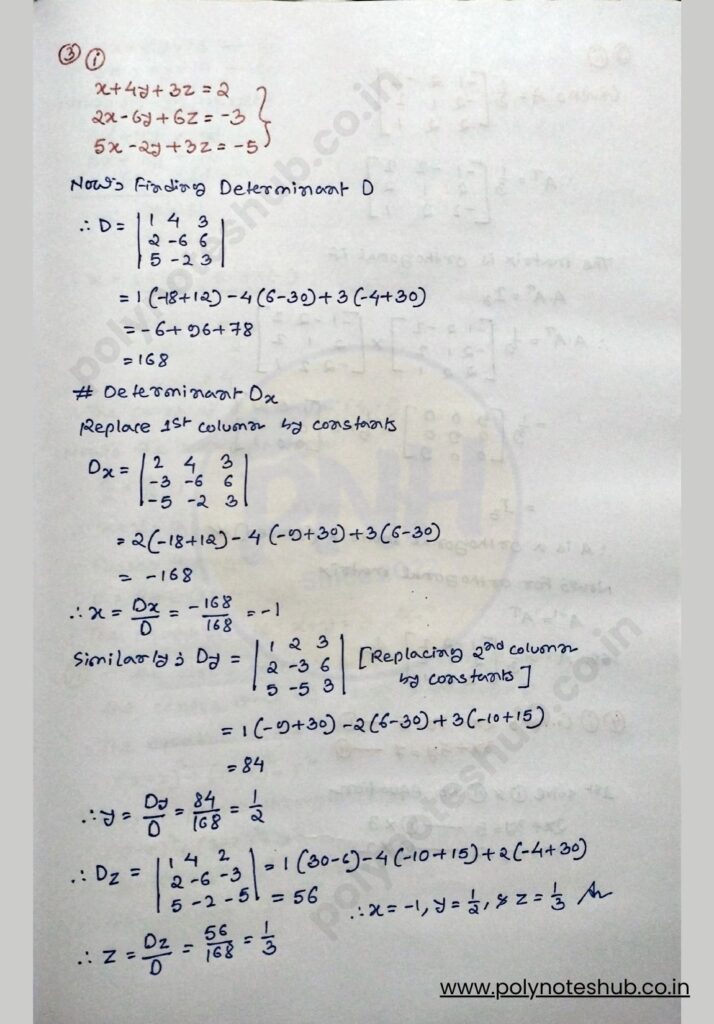 3 i
x+4y+3z=2
2x-6y+6z=-3
5x-2y+3z=-5
Now, Finding Determinant D
∴ D = | 1 4 3
2 -6 6
5 -2 3 |
= 1(-18+12)-4(6-30)+3(-4+30)
= -6+96+78
= 168
# Determinant Dx
Replace 1st column by constants
Dx = | 2 4 3
-3 -6 6
-5 -2 3 |
= 2(-18+12)-4(-9+30)+3(6-30)
= -168
∴ x = Dx/D = -168/168 = -1
Similarly; Dy = | 1 2 3
2 -3 6
5 -5 3 | [Replacing 2nd column
by constants]
= 1(-9+30)-2(6-30)+3(-10+15)
= 84
∴ y = Dy/D = 84/168 = 1/2
∴ Dz = | 1 4 2
2 -6 -3
5 -2 -5 | = 1(30-6)-4(-10+15)+2(-4+30)
= 56
∴ x=-1, y=1/2, & z=1/3 An
∴ z = Dz/D = 56/168 = 1/3
polynoteshub.co.in
PNH
polynoteshub.co.in
www.polynoteshub.co.in